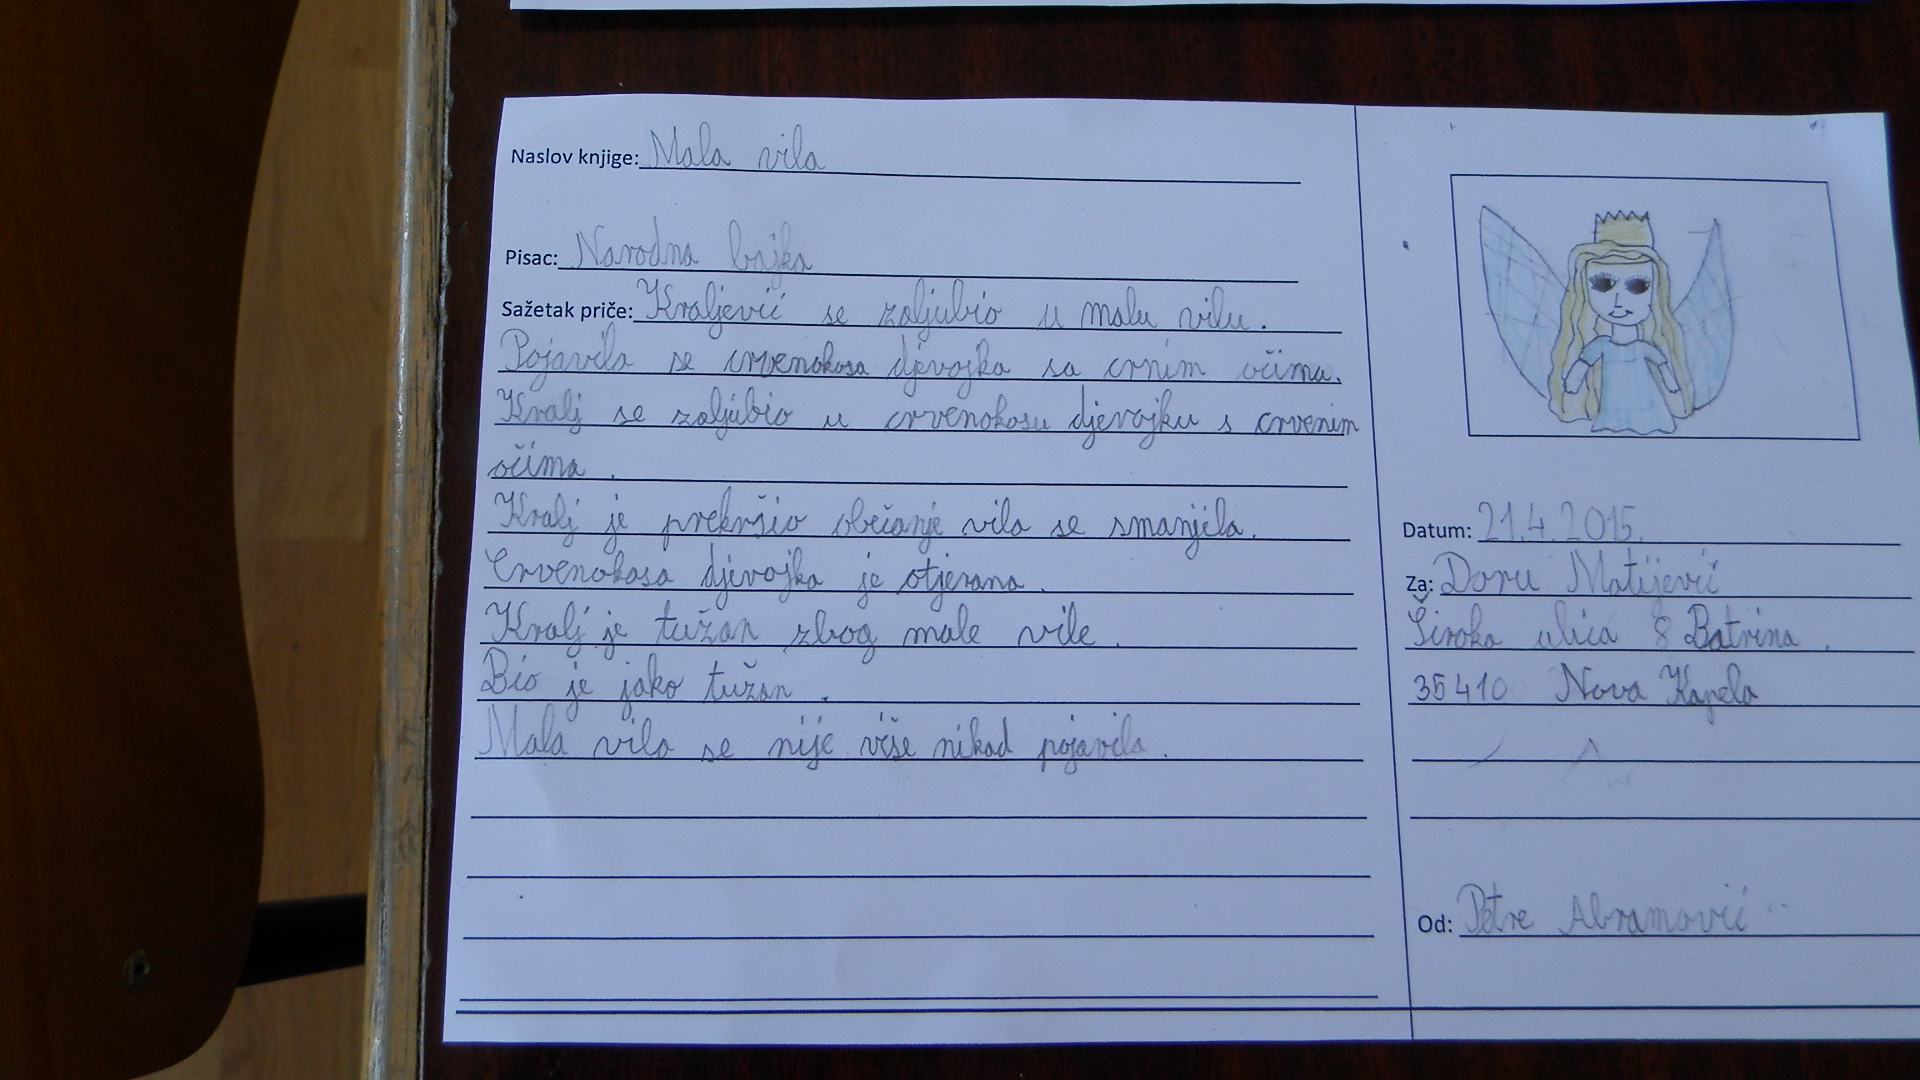 Naslov knjige: Mala vila
Pisac: Narodna bajka
Sažetak priče: Kraljević se zaljubio u malu vilu.
Pojavila se crvenokosa djevojka sa crnim očima.
Kralj se zaljubio u crvenokosu djevojku s crvenim
očima.
Kralj je prekršio obećanje vila se smanjila.
Crvenokosa djevojka je otjerana.
Kralj je tužan zbog male vile.
Bio je jako tužan.
Mala vila se nije više nikad pojavila.
Datum: 21.4.2015.
Za: Doru Matijević
Široka ulica 8 Batrina.
35410 Nova Kapela
Od: Petre Abramović